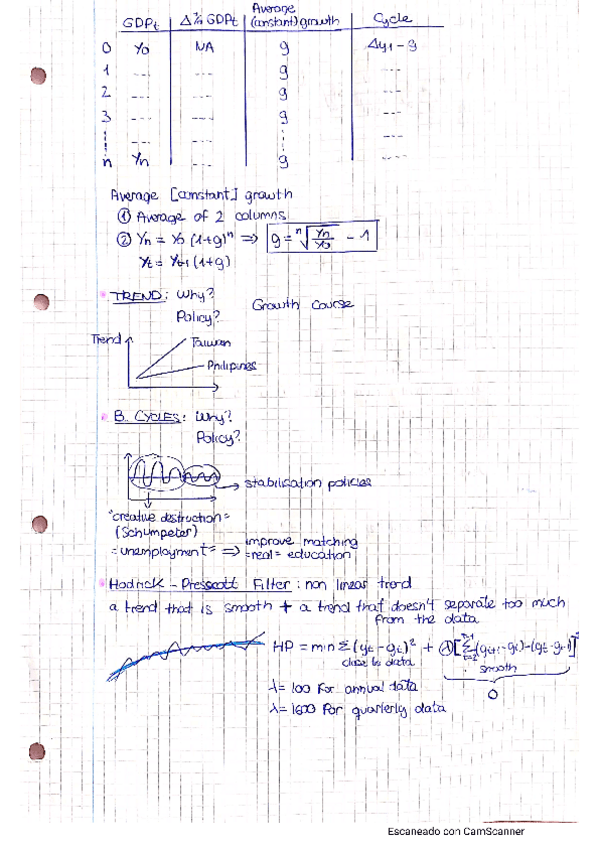 GDPt | Δ% GDPt | Average (constant) growth | Cycle
0 | Y0 | NA | g | Δy1 - g
1 | --- | --- | g | ---
2 | --- | --- | g | ---
3 | --- | --- | g | ---
⋮ | --- | --- | ⋮ | ---
n | Yn | --- | g | ---
Average [constant] growth
① Average of 2 columns
② Yn = Y0 (1+g)^n ⇒ g = ⁿ√(Yn/Y0) - 1
Yt = Yt-1 (1+g)
TREND: Why?
Policy?
Growth course
Trend
Taiwan
Philipines
B. CYCLES: Why?
Policy?
→ stabilisation policies
"creative destruction=
(Schumpeter)
=unemployment= ⇒ improve matching
=real= education
Hodrick - Presscott Filter: non linear trend
a trend that is smooth + a trend that doesn't separate too much
from the data
HP = min Σ (yt - gt)² + λ [Σ (gt+1 - gt) - (gt - gt-1)]²
t=2
n-1
close to data
smooth
0
λ = 100 For annual data
λ = 1600 For quarterly data
Escaneado con CamScanner